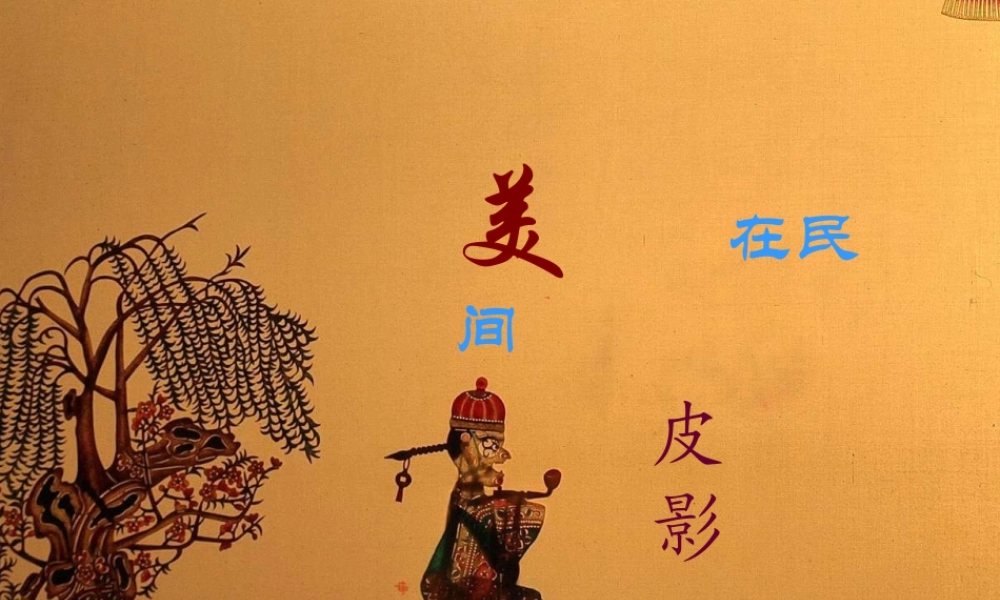 美在民
间
皮
影